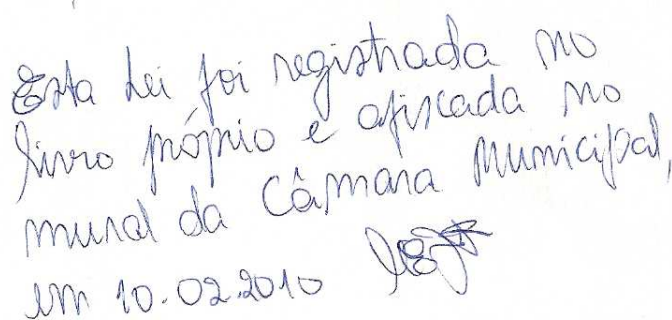 Esta Lei foi registrada no
livro próprio e afixada no
mural da Câmara Municipal,
em 10.02.2010